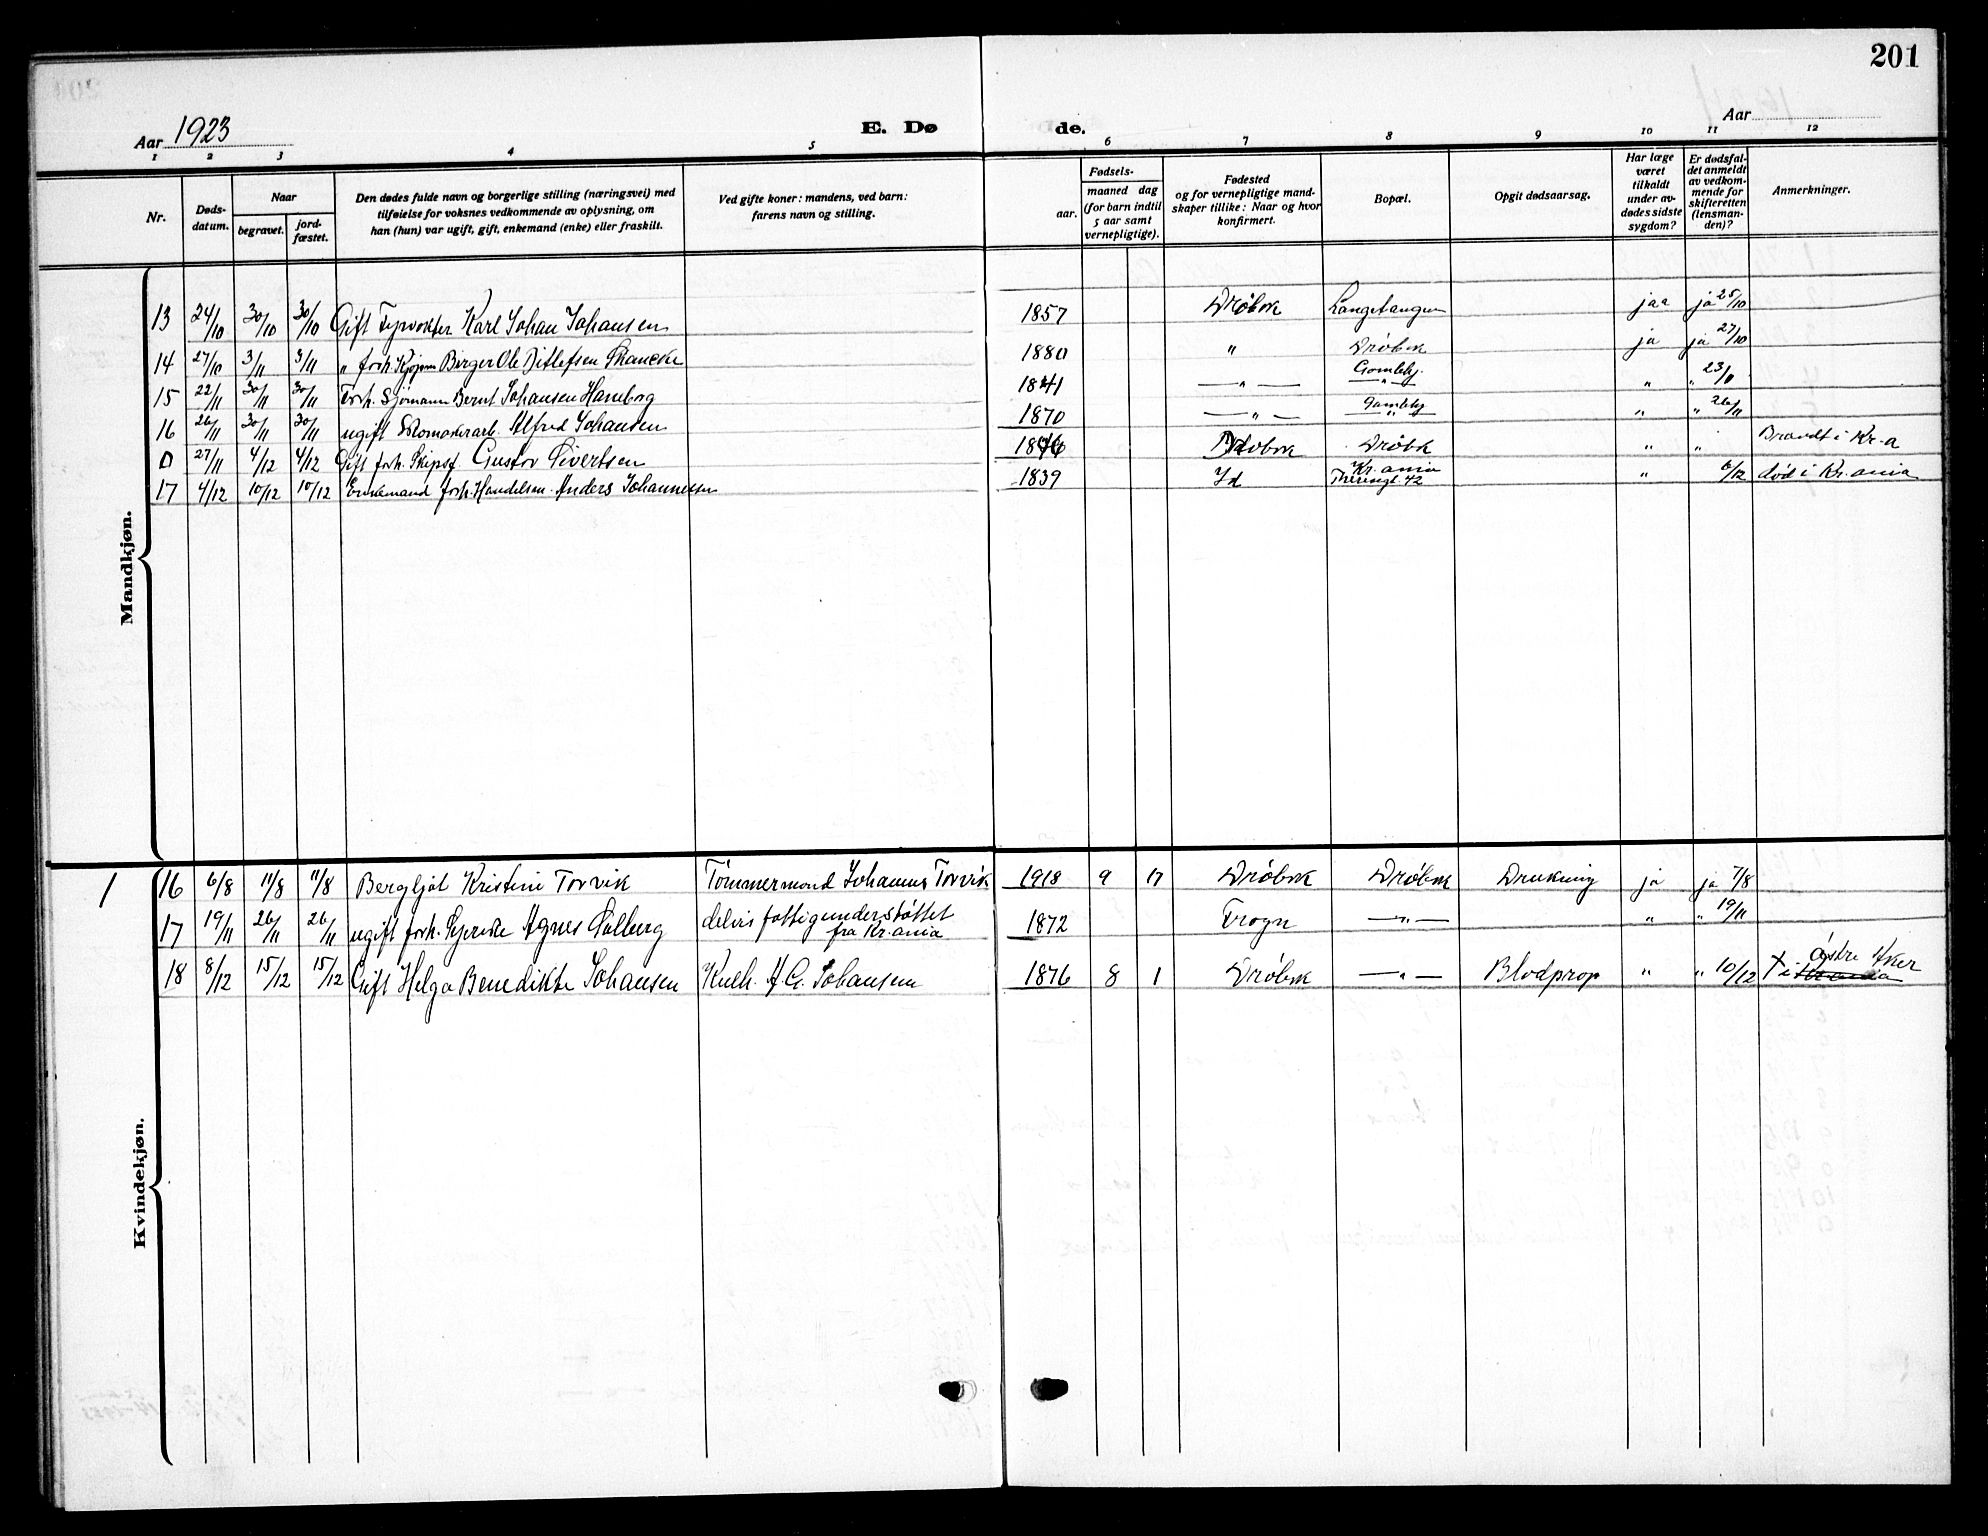 201
Aar 1923
E. Dø
de.
Aar
1 2 3 4 5 6 7 8 9 10 11 12
Nr.
Døds-
datum.
Naar
begravet.
jord-
fæstet.
Den dødes fulde navn og borgerlige stilling (næringsvei) med
tilføielse for voksnes vedkommende av oplysning, om
han (hun) var ugift, gift, enkemand (enke) eller fraskilt.
Ved gifte koner: mandens, ved barn:
farens navn og stilling.
Fødsels-
aar.
maaned dag
(for barn indtil
5 aar samt
vernepligtige).
Fødested
og for vernepligtige mand-
skaper tillike: Naar og hvor
konfirmert.
Bopæl.
Opgit dødsaarsag.
Har læge
været
tilkaldt
under av-
dødes sidste
sygdom?
Er dødsfal-
det anmeldt
av vedkom-
mende for
skifteretten
(lensman-
den)?
Anmerkninger.
Mandkjøn.
13 24/10 30/10 30/10 Gift Fyrvokter Karl Johan Johansen 1857 Drøbak Langetangen jaa ja 25/10
14 27/10 3/11 3/11 " forh. Kjøpm Birger Ole Ditlefsen Skancke 1880 " Drøbak ja ja 27/10
15 22/11 30/11 30/11 Forh. Sjømann Bernt Johansen Hamborg 1841 — " — Gamleby. — " — " " 23/11
16 26/11 30/11 30/11 ugift Skomakerarb. Alfred Johansen 1870 — " — Gamleby — " — " " 26/11
0 27/11 4/12 4/12 Gift forh. Skipsf. Gustav Sivertsen 1846 Drøbak Drøbk " " Brændt i Kr.a
17 4/12 10/12 10/12 Enkemand forh. Handelsm. Anders Johannessen 1839 Id Kr.ania 42 " 6/12 død i Kr.ania
Kvindekjøn.
1 16 6/8 11/8 11/8 Bergljot Kristine Torvik Tømmermand Johannes Torvik 1918 9 17 Drøbak Drøbak Drukning ja ja 7/8
17 19/11 26/11 26/11 ugift forh. Syerske Agnes Solberg delvis fattigunderstøttet fra Kr.ania 1872 Frogn — " — " " 19/11
18 8/12 15/12 15/12 Gift Helga Benedikte Johansen Kulh. A. G. Johansen 1876 8 1 Drøbak — " — Blodprop " " 10/12 † i Østre Aker